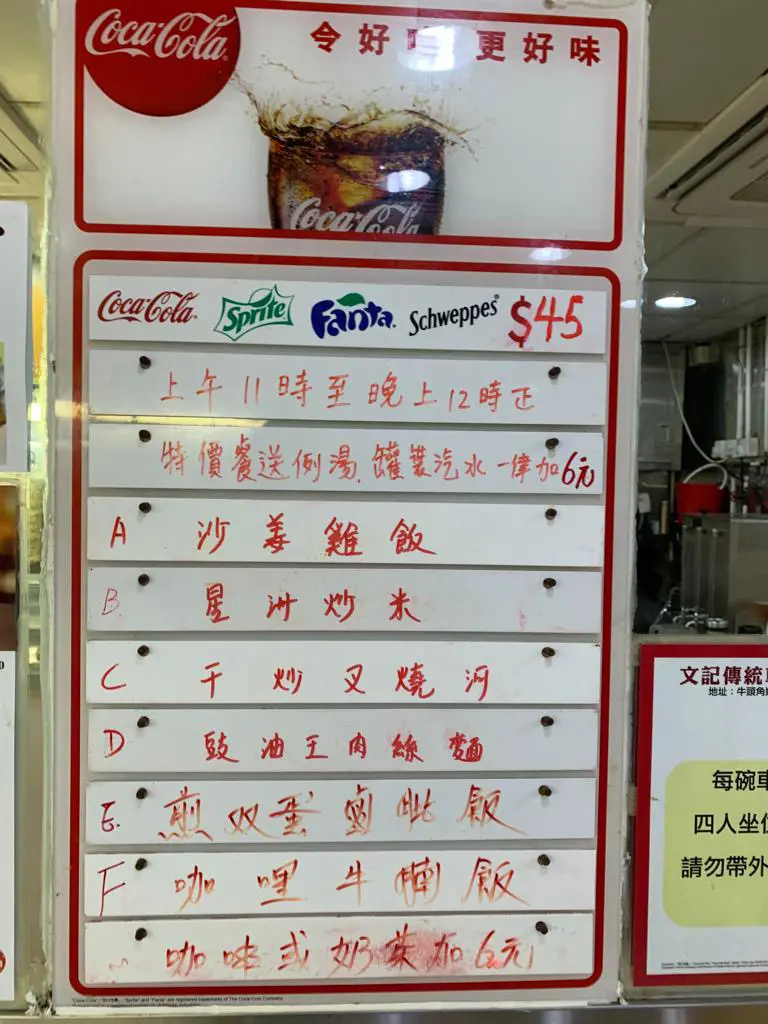 Coca-Cola
令好 更好味
Coca-Cola
Coca-Cola Sprite Fanta Schweppes $45
上午11時至晚上12時正
特價餐送例湯.罐裝汽水一律加6元
A 沙姜雞飯
B. 星洲炒米
C 干炒叉燒河
D 豉油王肉絲麵
E. 煎双蛋鹵吡飯
F 咖哩牛腩飯
咖啡或奶茶加6元
文記傳統
地址：牛頭角
每碗車
四人坐位
請勿帶外